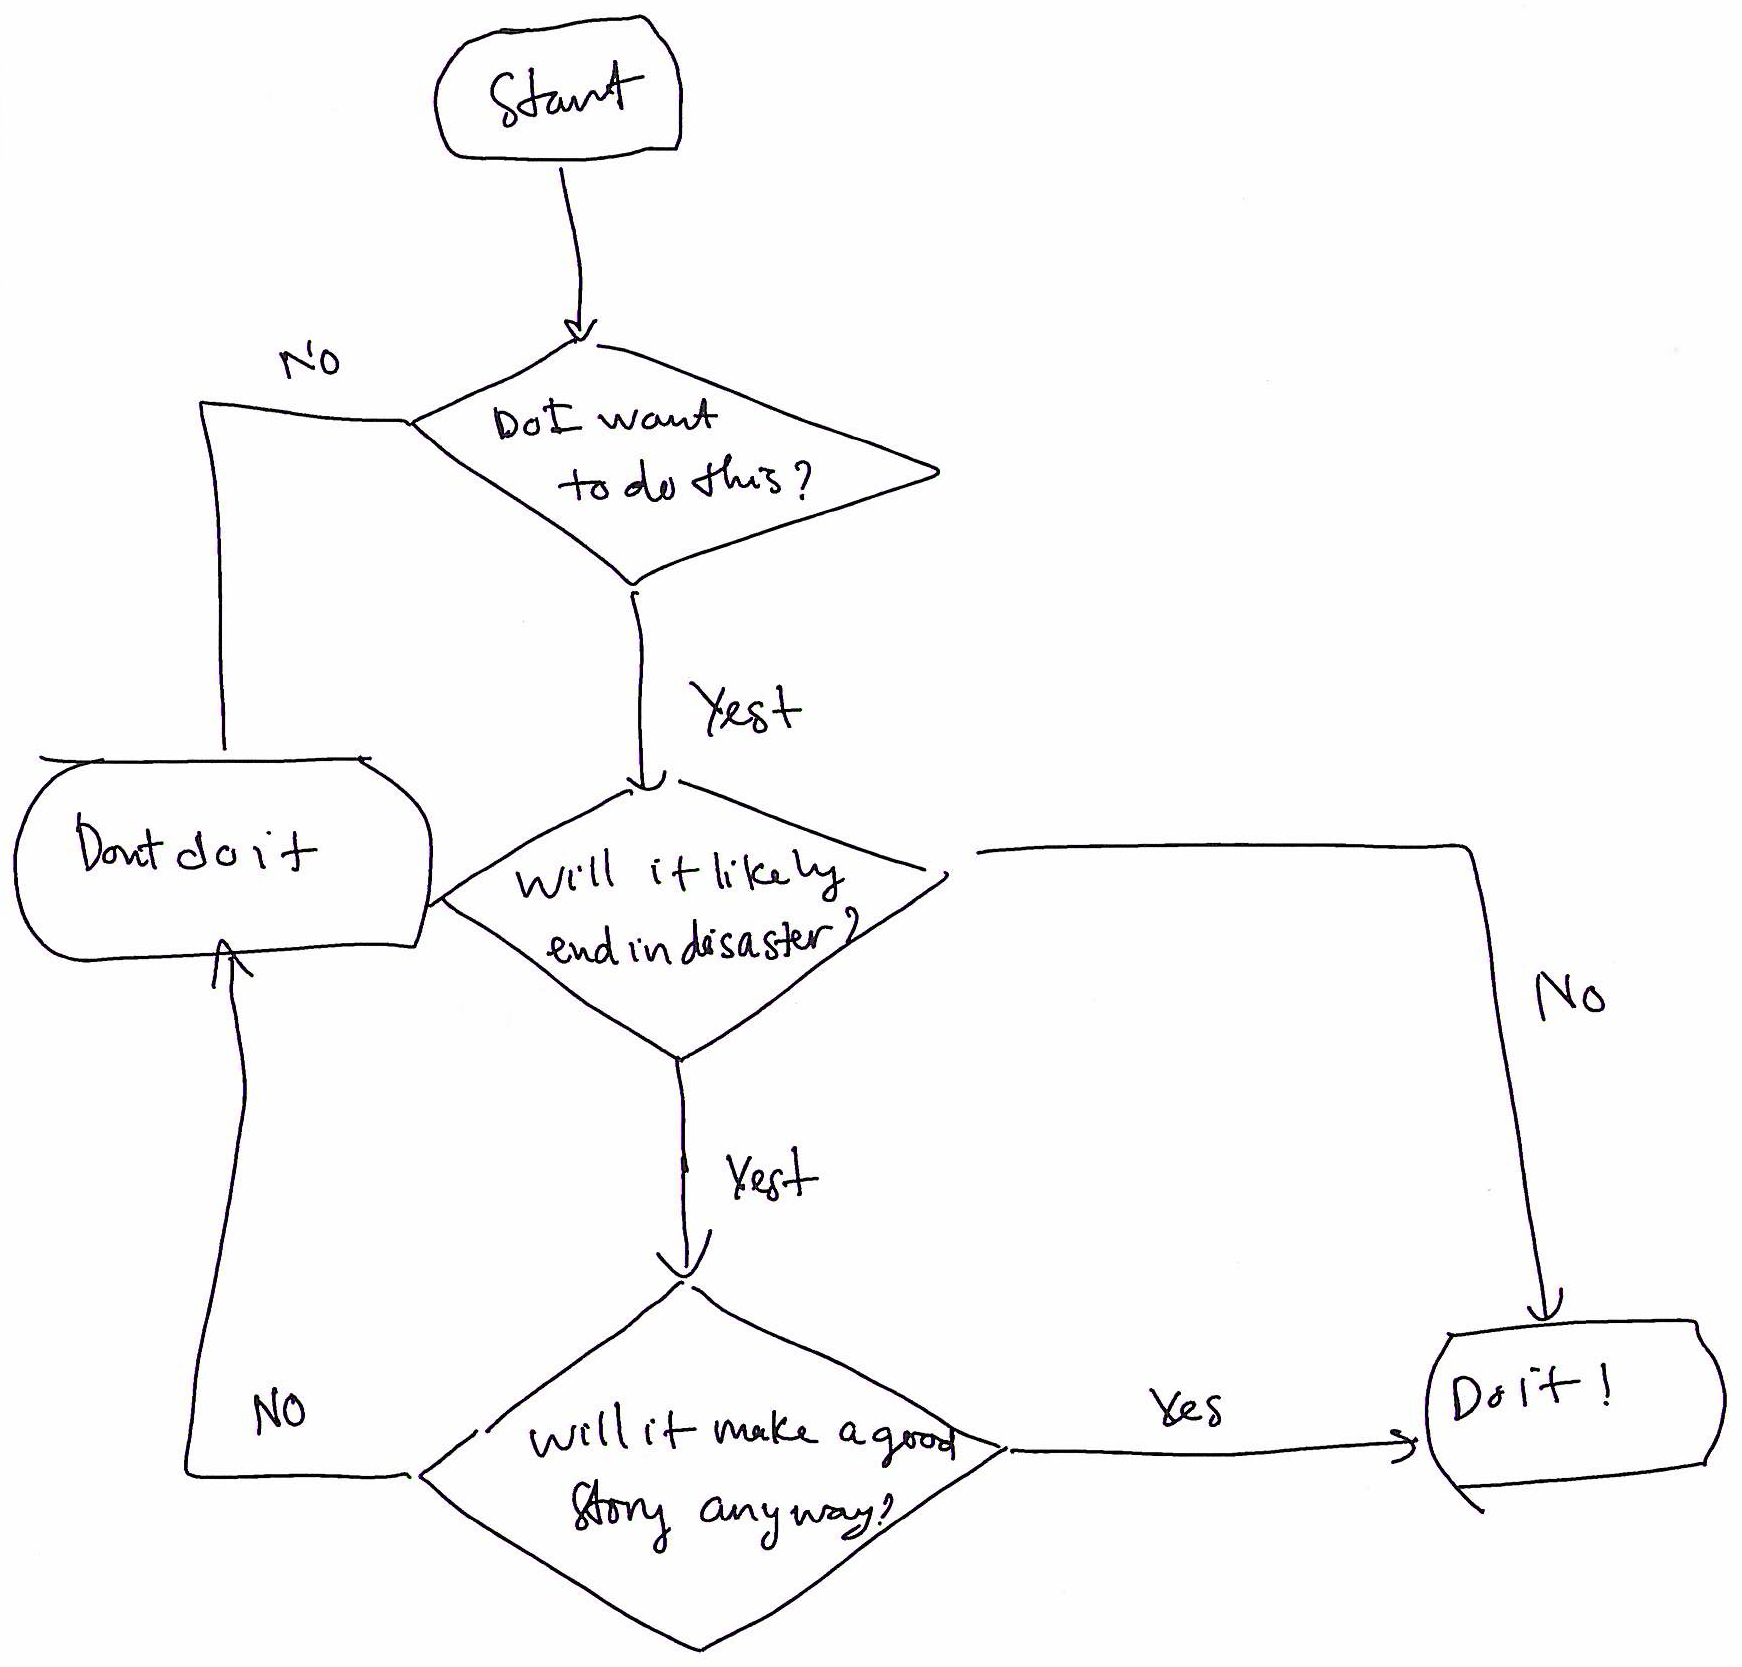 Start
No
Do I want
to do this?
Yest
Dont do it
Will it likely
end in disaster?
No
Yest
Do it!
Yes
NO
Will it make a good
Story anyway?